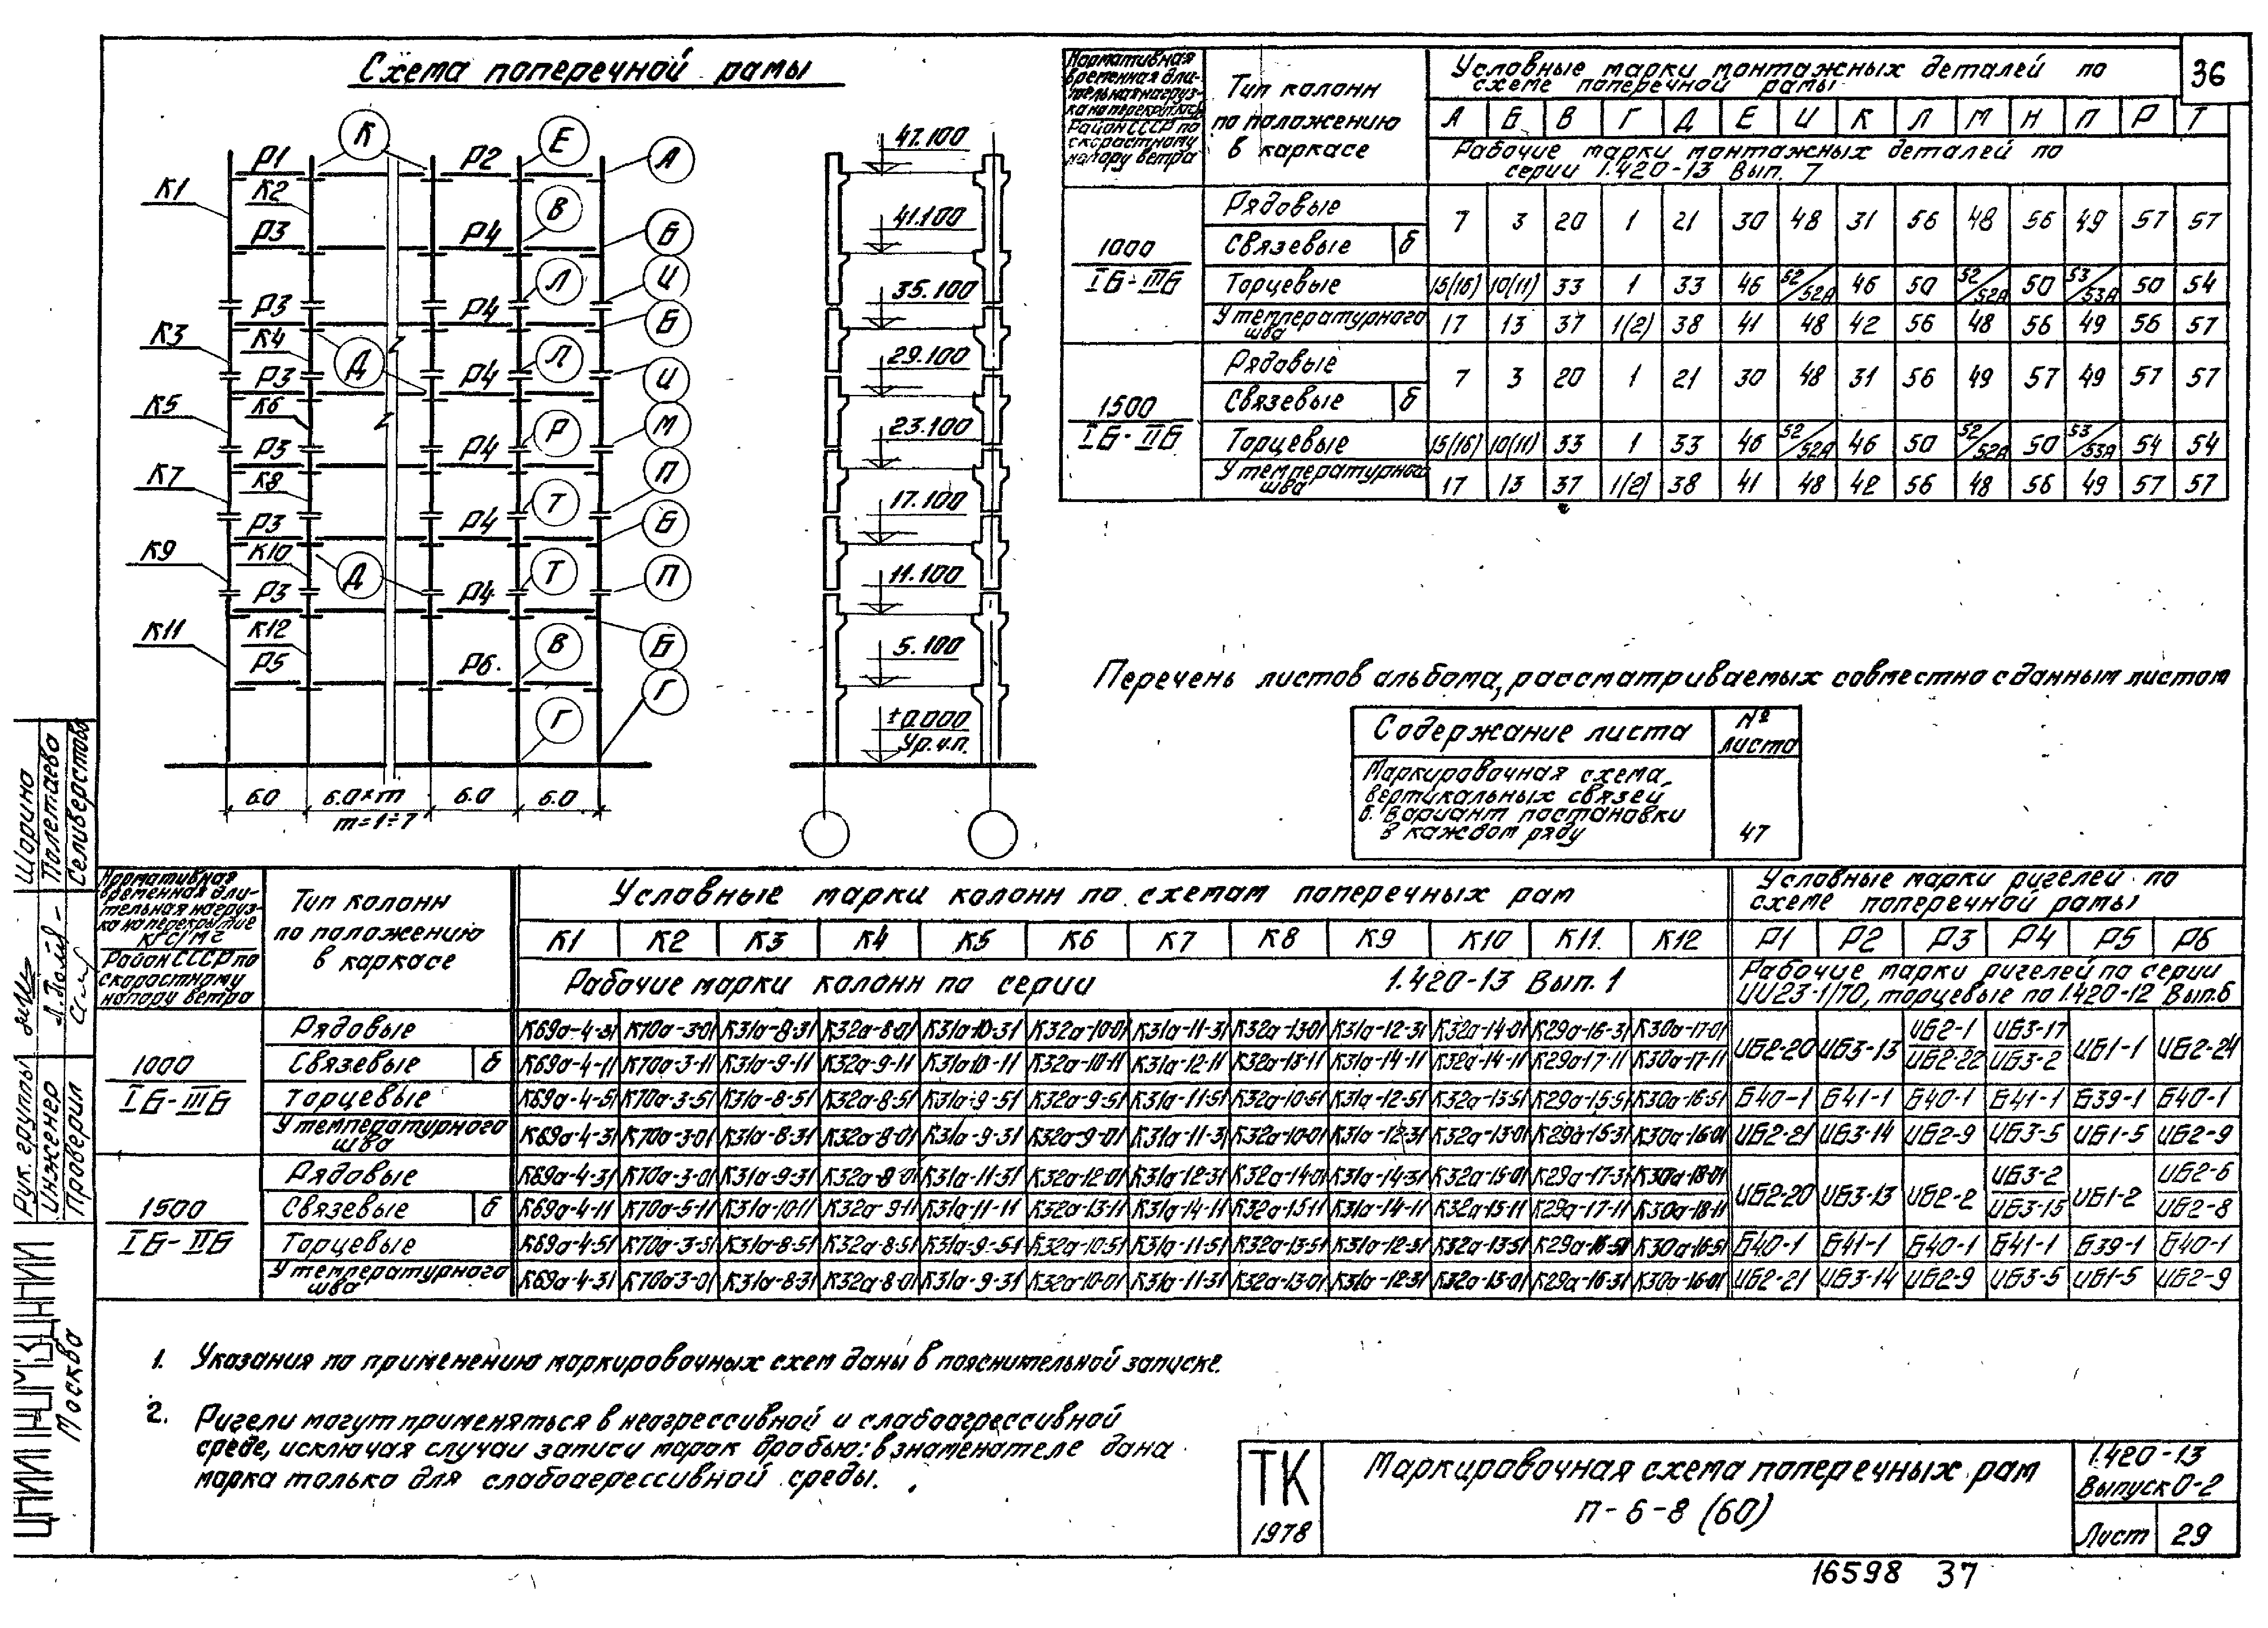 36
Схема поперечной рамы
К Е А
Р1 Р2
К1 К2
В
Р3 Р4 Б
Л И
Р3 Р4 Б
К3 К4
Д Л И
Р3 Р4
К5 К6
Р М
Р3 Р4
К7 К8
Т П
Р3 Р4 Б
К9 К10
Д Т П
Р3 Р4
К11 К12
Р5 Р6
В Б
Г Г
6.0 6.0×m 6.0 6.0
m=1÷7
47.100
41.100
35.100
29.100
23.100
17.100
11.100
5.100
±0.000
Ур.ч.п.
Нормативная
временная дли-
тельная нагруз-
ка на перекрытие
Район СССР по
скоростному
напору ветра
Тип колонн
по положению
в каркасе
Условные марки монтажных деталей по
схеме поперечной рамы
А Б В Г Д Е И К Л М Н П Р Т
Рабочие марки монтажных деталей по
серии 1.420-13 Вып. 7
1000
IБ-IIIБ
Рядовые
Связевые б
7 3 20 1 21 30 48 31 56 48 56 49 57 57
Торцевые 15(16) 10(11) 33 1 33 46 52/52А 46 50 52/52А 50 53/53А 50 54
У температурного
шва
17 13 37 1(2) 38 41 48 42 56 48 56 49 56 57
1500
IБ-IIБ
Рядовые
Связевые б
7 3 20 1 21 30 48 31 56 49 57 49 57 57
Торцевые 15(16) 10(11) 33 1 33 46 52/52А 46 50 52/52А 50 53/53А 54 54
У температурного
шва
17 13 37 1(2) 38 41 48 42 56 48 56 49 57 57
Перечень листов альбома, рассматриваемых совместно с данным листом
Содержание листа
№
листа
Маркировочная схема
вертикальных связей
б. Вариант постановки
в каждом ряду
47
Нормативная
временная дли-
тельная нагруз-
ка на перекрытие
кгс/м2
Район СССР по
скоростному
напору ветра
Тип колонн
по положению
в каркасе
Условные марки колонн по схемам поперечных рам
К1 К2 К3 К4 К5 К6 К7 К8 К9 К10 К11 К12
Рабочие марки колонн по серии 1.420-13 Вып. 1
Условные марки ригелей по
схеме поперечной рамы
Р1 Р2 Р3 Р4 Р5 Р6
Рабочие марки ригелей по серии
ИИ23-1/70, торцевые по 1.420-12 Вып.6
1000
IБ-IIIБ
Рядовые К69а-4-31 К70а-3-01 К31а-8-31 К32а-8-01 К31а-10-31 К32а-10-01 К31а-11-31 К32а-13-01 К31а-12-31 К32а-14-01 К29а-16-31 К30а-17-01
Связевые б К69а-4-11 К70а-3-11 К31а-9-11 К32а-9-11 К31а-10-11 К32а-10-11 К31а-12-11 К32а-13-11 К31а-14-11 К32а-14-11 К29а-17-11 К30а-17-11
ИБ2-20 ИБ3-13 ИБ2-1/ИБ2-22 ИБ3-17/ИБ3-2 ИБ1-1 ИБ2-24
Торцевые К69а-4-51 К70а-3-51 К31а-8-51 К32а-8-51 К31а-9-51 К32а-9-51 К31а-11-51 К32а-10-51 К31а-12-51 К32а-13-51 К29а-15-51 К30а-16-51 Б40-1 Б41-1 Б40-1 Б41-1 Б39-1 Б40-1
У температурного
шва
К69а-4-31 К70а-3-01 К31а-8-31 К32а-8-01 К31а-9-31 К32а-9-01 К31а-11-31 К32а-10-01 К31а-12-31 К32а-13-01 К29а-15-31 К30а-16-01 ИБ2-21 ИБ3-14 ИБ2-9 ИБ3-5 ИБ1-5 ИБ2-9
1500
IБ-IIБ
Рядовые К69а-4-31 К70а-3-01 К31а-9-31 К32а-8-01 К31а-11-31 К32а-12-01 К31а-12-31 К32а-14-01 К31а-14-31 К32а-15-01 К29а-17-31 К30а-18-01
Связевые б К69а-4-11 К70а-5-11 К31а-10-11 К32а-9-11 К31а-11-11 К32а-13-11 К31а-14-11 К32а-15-11 К31а-14-11 К32а-15-11 К29а-17-11 К30а-18-11
ИБ2-20 ИБ3-13 ИБ2-2 ИБ3-2/ИБ3-15 ИБ1-2 ИБ2-6/ИБ2-8
Торцевые К69а-4-51 К70а-3-51 К31а-8-51 К32а-8-51 К31а-9-51 К32а-10-51 К31а-11-51 К32а-13-51 К31а-12-51 К32а-13-51 К29а-16-51 К30а-16-51 Б40-1 Б41-1 Б40-1 Б41-1 Б39-1 Б40-1
У температурного
шва
К69а-4-31 К70а-3-01 К31а-8-31 К32а-8-01 К31а-9-31 К32а-10-01 К31а-11-31 К32а-13-01 К31а-12-31 К32а-13-01 К29а-16-31 К30а-16-01 ИБ2-21 ИБ3-14 ИБ2-9 ИБ3-5 ИБ1-5 ИБ2-9
1. Указания по применению маркировочных схем даны в пояснительной записке.
2. Ригели могут применяться в неагрессивной и слабоагрессивной
среде, исключая случаи записи марок дробью: в знаменателе дана
марка только для слабоагрессивной среды.
ТК
1978
Маркировочная схема поперечных рам
П-6-8 (60)
1.420-13
Выпуск 0-2
Лист 29
16598 37
Рук. группы Шарина
Инженер Палетаева
Проверил Селиверстова
ЦНИИПРОМЗДАНИЙ
Москва